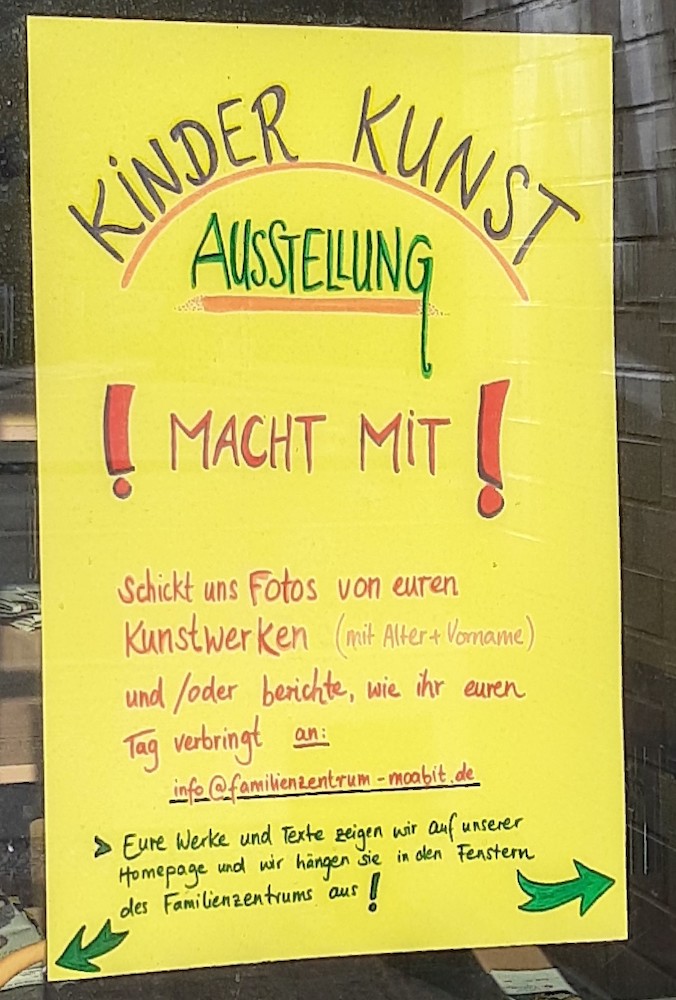 KiNDER KUNST
AUSSTELLUNG
! MACHT MiT !
Schickt uns Fotos von euren
Kunstwerken (mit Alter + Vorname)
und /oder berichte, wie ihr euren
Tag verbringt an:
info@familienzentrum-moabit.de
> Eure Werke und Texte zeigen wir auf unserer
Homepage und wir hängen sie in den Fenstern
des Familienzentrums aus !